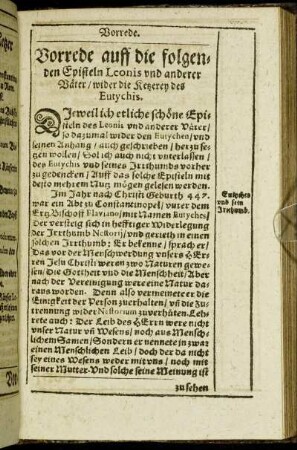 Vorrede.
Vorrede auff die folgen-
den Episteln Leonis vnd anderer
Väter / wider die Ketzerey des
Eutychis.
DIeweil ich etliche schöne Epi-
steln des Leonis vnd anderer Väter /
so dazumal wider den Eutychen / vnd
seinen Anhang / auch geschrieben / her zu se-
tzen wollen / Sol ich auch nicht vnterlassen /
des Eutychis vnd seines Irrthumbs vorher
zu gedencken / Auff das solche Episteln mit
desto mehrem Nutz mögen gelesen werden.
Im Jahr nach Christi Geburth 447.
war ein Abt zu Constantinopel / vnter dem
Ertz-Bischoff Flaviano / mit Namen Eutyches /
Der versteig sich in hefftiger Widerlegung
der Irrthumb Nestorij / vnd gerieth in einen
solchen Irrthumb: Er bekenne / sprach er /
Das vor der Menschwerdung vnsers HEr-
ren Jesu Christi weren zwo Naturen gewe-
sen / Die Gottheit vnd die Menschheit / Aber
nach der Vereinigung were eine Natur da-
raus worden. Denn also vermeinete er die
Einigkeit der Person zu erhalten / vnd die Zu-
trennung wider Nestorium zu verhüten. Leh-
rete auch: Der Leib des HErrn were nicht
vnser Natur vñ Wesens / noch aus Mensch-
lichem Samen / Sondern er nennete jn zwar
einen Menschlichen Leib / doch der da nicht
sey eines Wesens weder mit vns / noch mit
seiner Mutter. Vnd solche seine Meinung ist
zu sehen
Eutyches
vnd sein
Irrthumb.